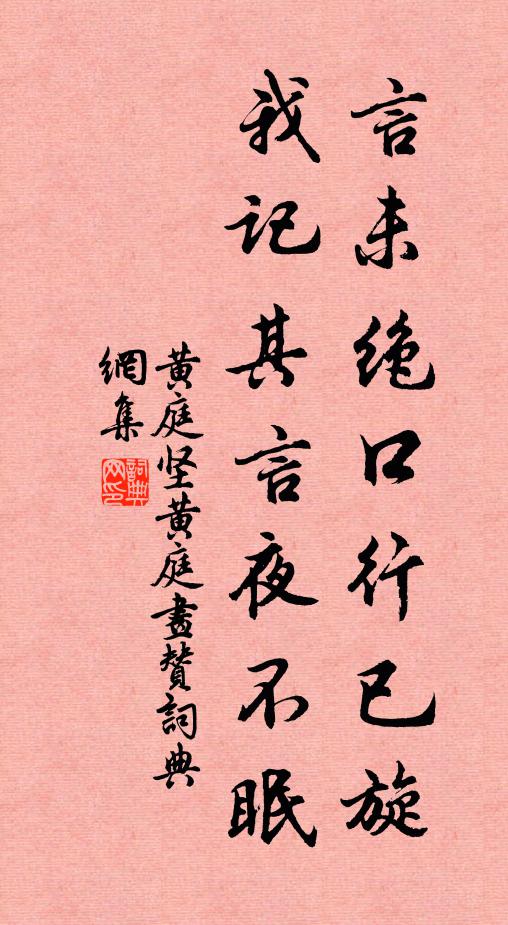 言未绝口行已旋
我记其言夜不眠
黄庭坚黄庭畫賛詞典
網集
詞典网印